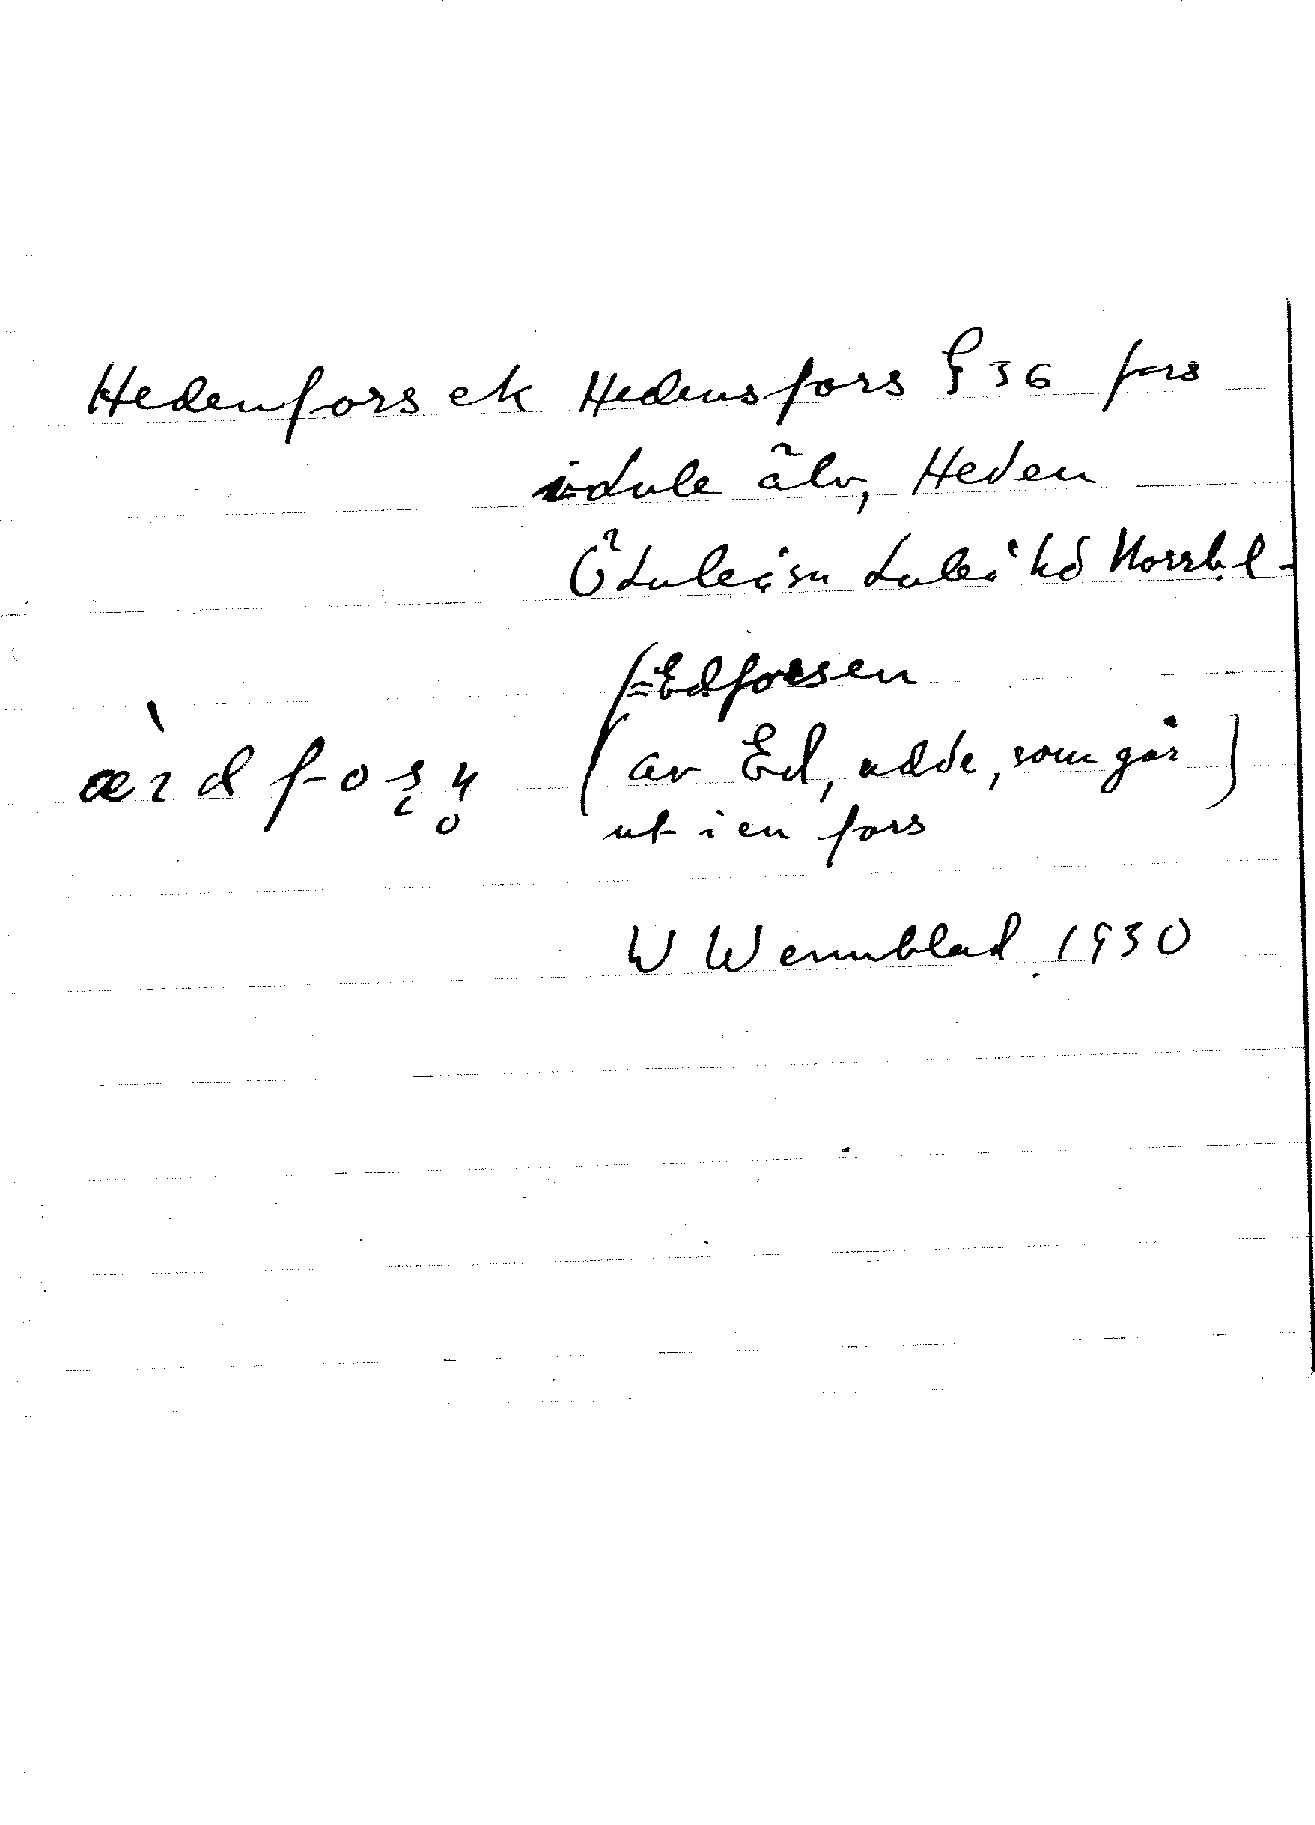 Hedenfors ek Hedensfors § 36 fors
i Lule älv, Heden
Ö Luleå sn Luleå hd Norrb. l.
(=Edforsen
(av Ed, udde, som går)
ærdfosn
ut i en fors
W Wennblad 1930